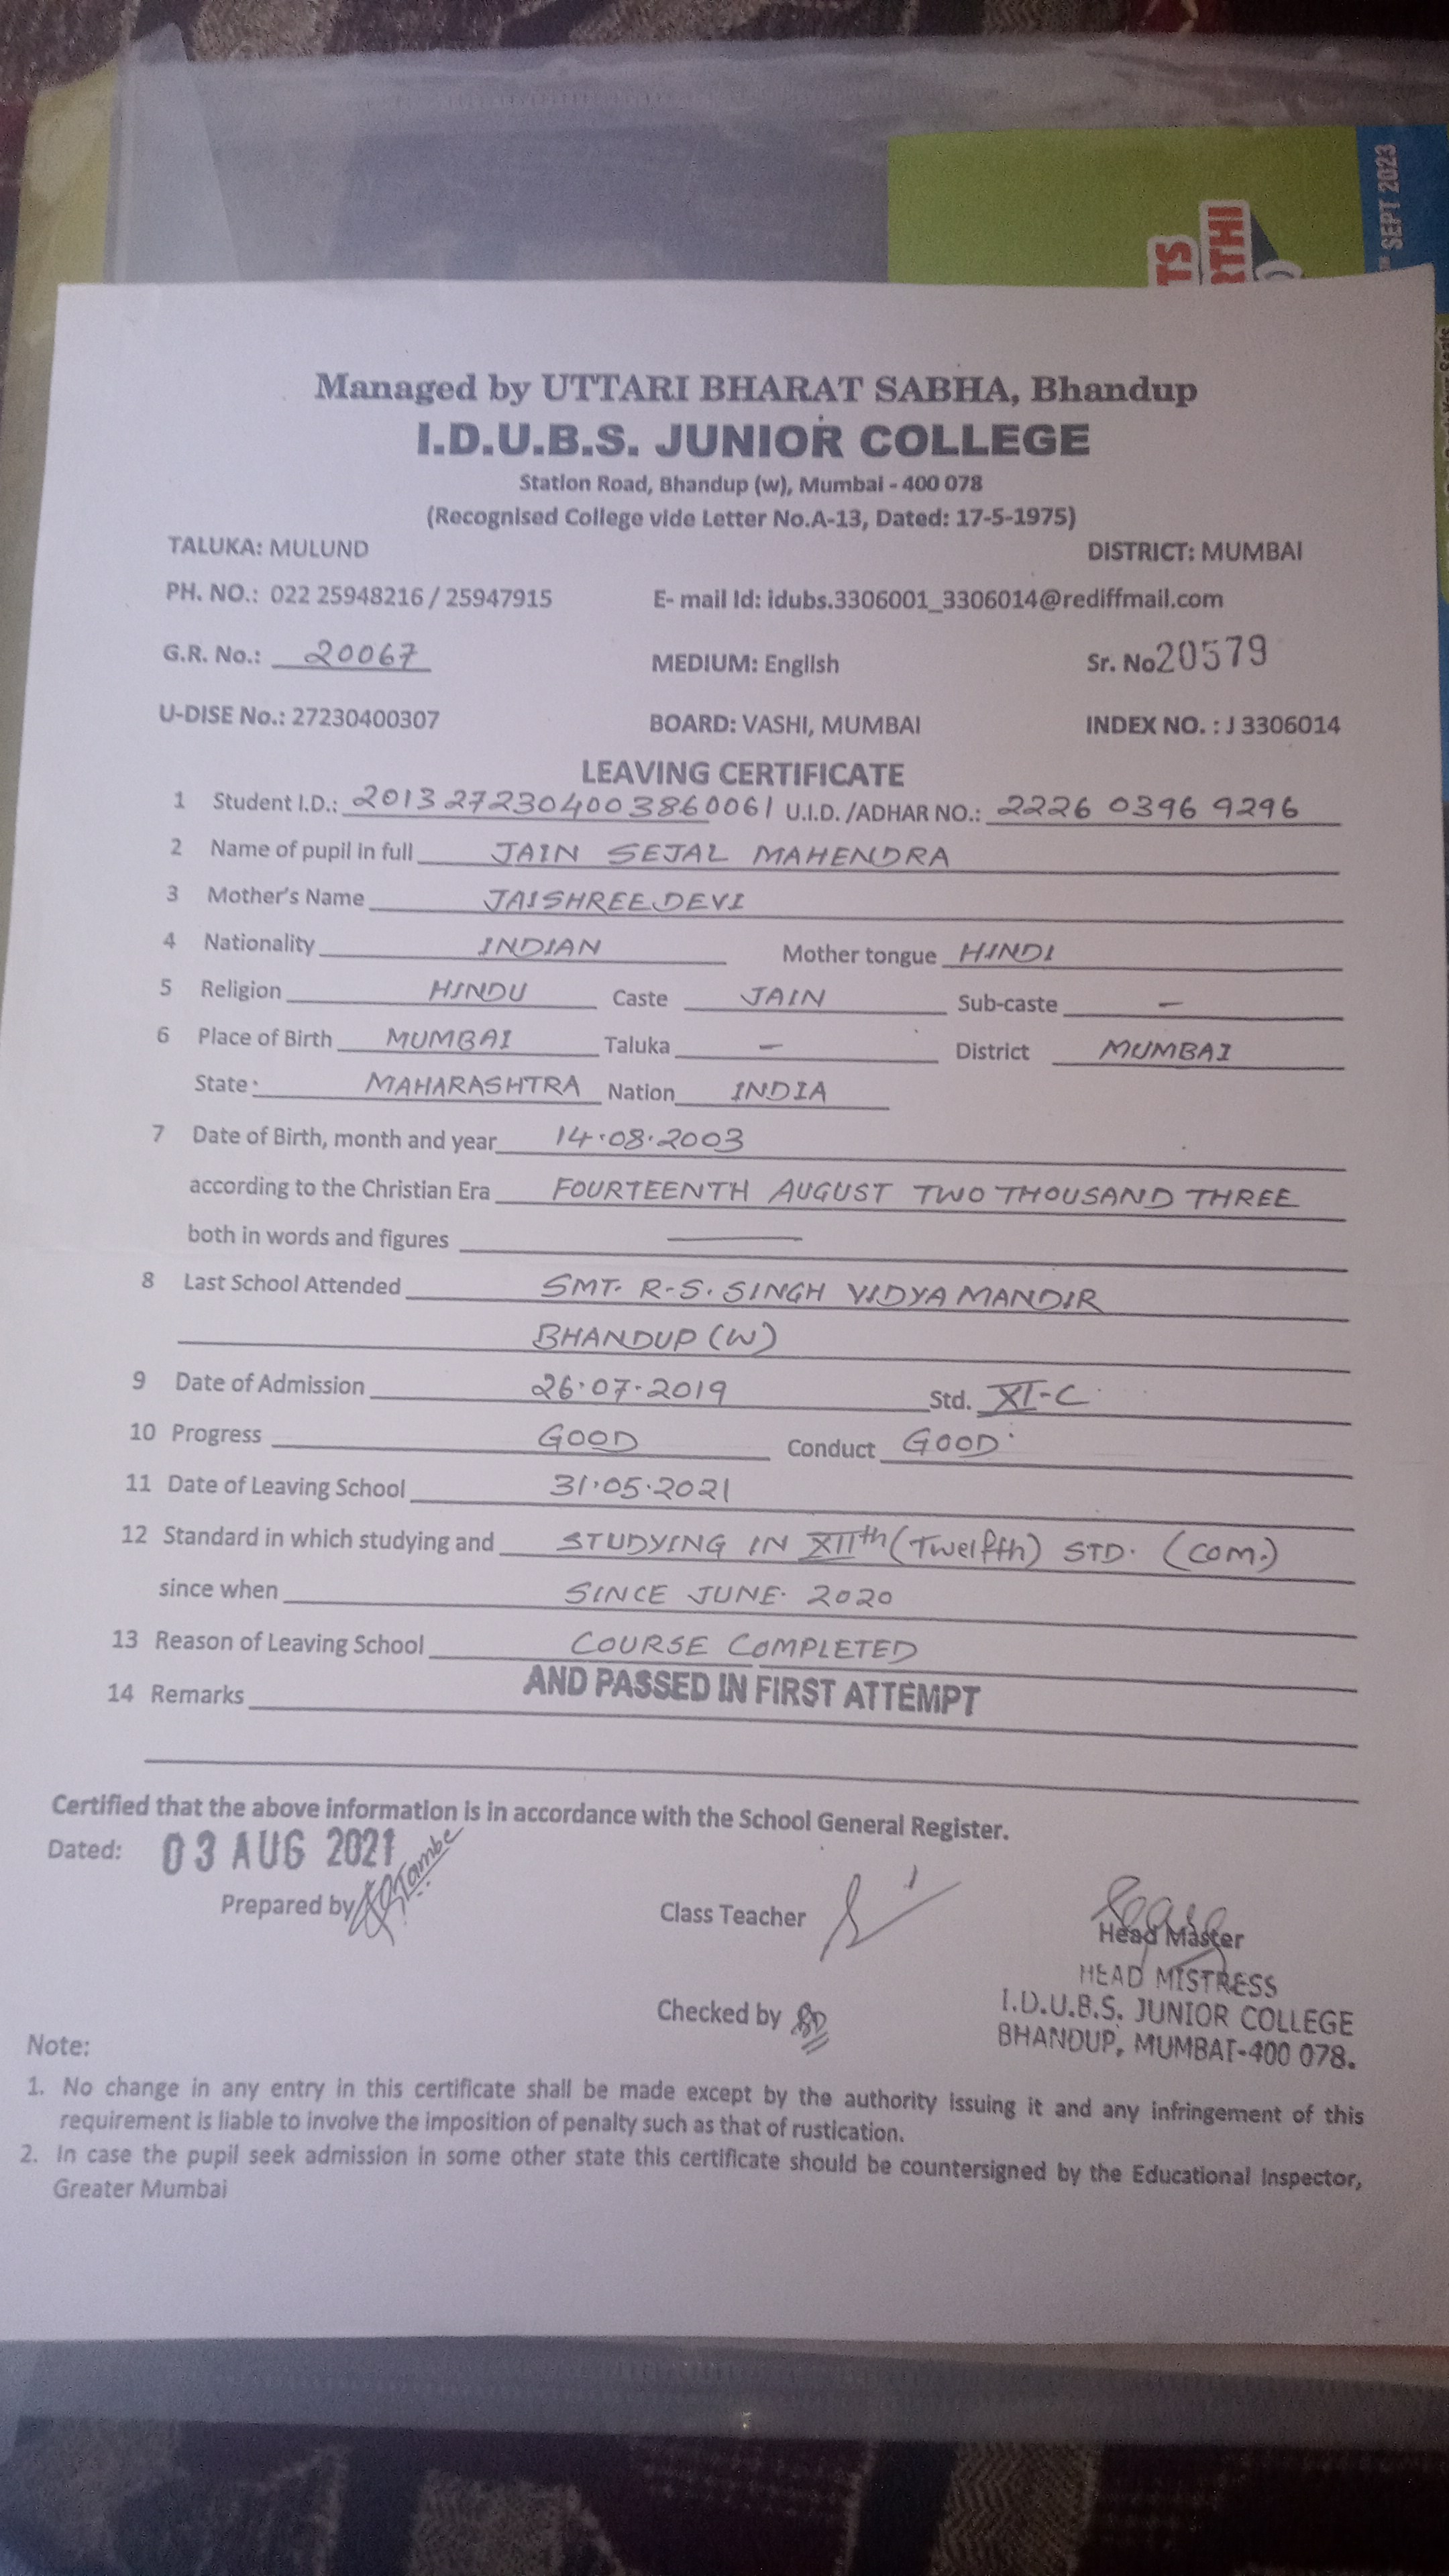 SEPT 2023
TS
RTHI
Managed by UTTARI BHARAT SABHA, Bhandup
I.D.U.B.S. JUNIOR COLLEGE
Station Road, Bhandup (w), Mumbai - 400 078
(Recognised College vide Letter No.A-13, Dated: 17-5-1975)
TALUKA: MULUND DISTRICT: MUMBAI
PH. NO.: 022 25948216 / 25947915 E- mail Id: idubs.3306001_3306014@rediffmail.com
G.R. No.: 20067 MEDIUM: English Sr. No 20579
U-DISE No.: 27230400307 BOARD: VASHI, MUMBAI INDEX NO. : J 3306014
LEAVING CERTIFICATE
1 Student I.D.: 2013272304003860061 U.I.D. /ADHAR NO.: 2226 0396 9296
2 Name of pupil in full JAIN SEJAL MAHENDRA
3 Mother's Name JAISHREEDEVI
4 Nationality INDIAN Mother tongue HINDI
5 Religion HINDU Caste JAIN Sub-caste —
6 Place of Birth MUMBAI Taluka — District MUMBAI
State MAHARASHTRA Nation INDIA
7 Date of Birth, month and year 14.08.2003
according to the Christian Era FOURTEENTH AUGUST TWO THOUSAND THREE
both in words and figures —
8 Last School Attended SMT. R.S. SINGH VIDYA MANDIR
BHANDUP (W)
9 Date of Admission 26.07.2019 Std. XI-C
10 Progress GOOD Conduct GOOD
11 Date of Leaving School 31.05.2021
12 Standard in which studying and STUDYING IN XIIth (Twelfth) STD. (COM.)
since when SINCE JUNE. 2020
13 Reason of Leaving School COURSE COMPLETED
14 Remarks AND PASSED IN FIRST ATTEMPT
Certified that the above information is in accordance with the School General Register.
Dated: 03 AUG 2021
Prepared by Tambe Class Teacher Head Master
HEAD MISTRESS
Checked by I.D.U.B.S. JUNIOR COLLEGE
BHANDUP, MUMBAI-400 078.
Note:
1. No change in any entry in this certificate shall be made except by the authority issuing it and any infringement of this
requirement is liable to involve the imposition of penalty such as that of rustication.
2. In case the pupil seek admission in some other state this certificate should be countersigned by the Educational Inspector,
Greater Mumbai